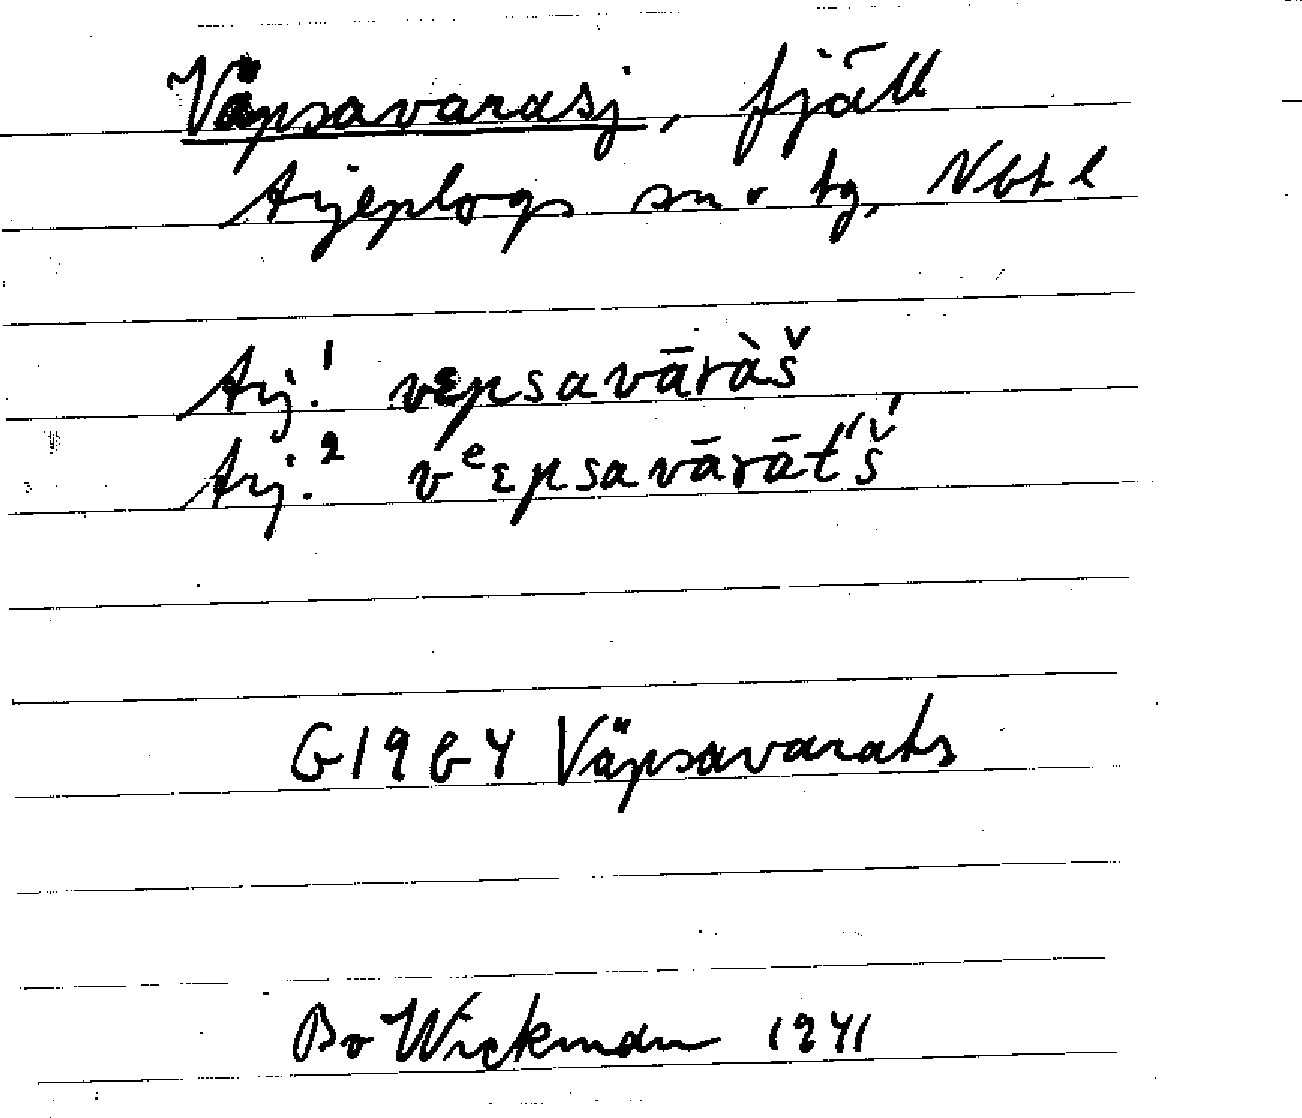 Väpsavarasj, fjäll
Arjeplogs sn o tg, Nbt l
Arj.¹ vɛpsavāràš
Arj.² vᵉɛpsavārāt́š́
G 1964 Väpsavarats
Bo Wickman 1941